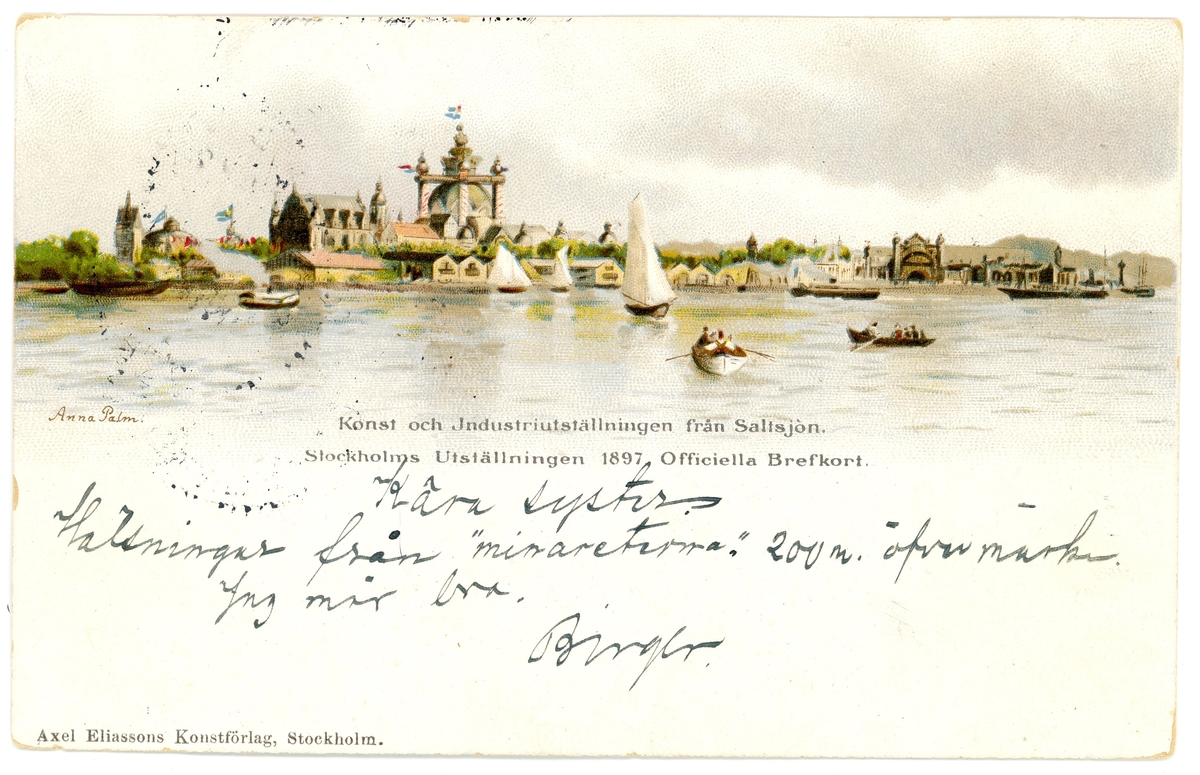 Anna Palm.
Konst och Industriutställningen från Saltsjön.
Stockholms Utställningen 1897. Officiella Brefkort.
Kära syster
Hälsningar från "minareterna." 200 m. öfver marken.
Jag mår bra.
Birger.
Axel Eliassons Konstförlag, Stockholm.